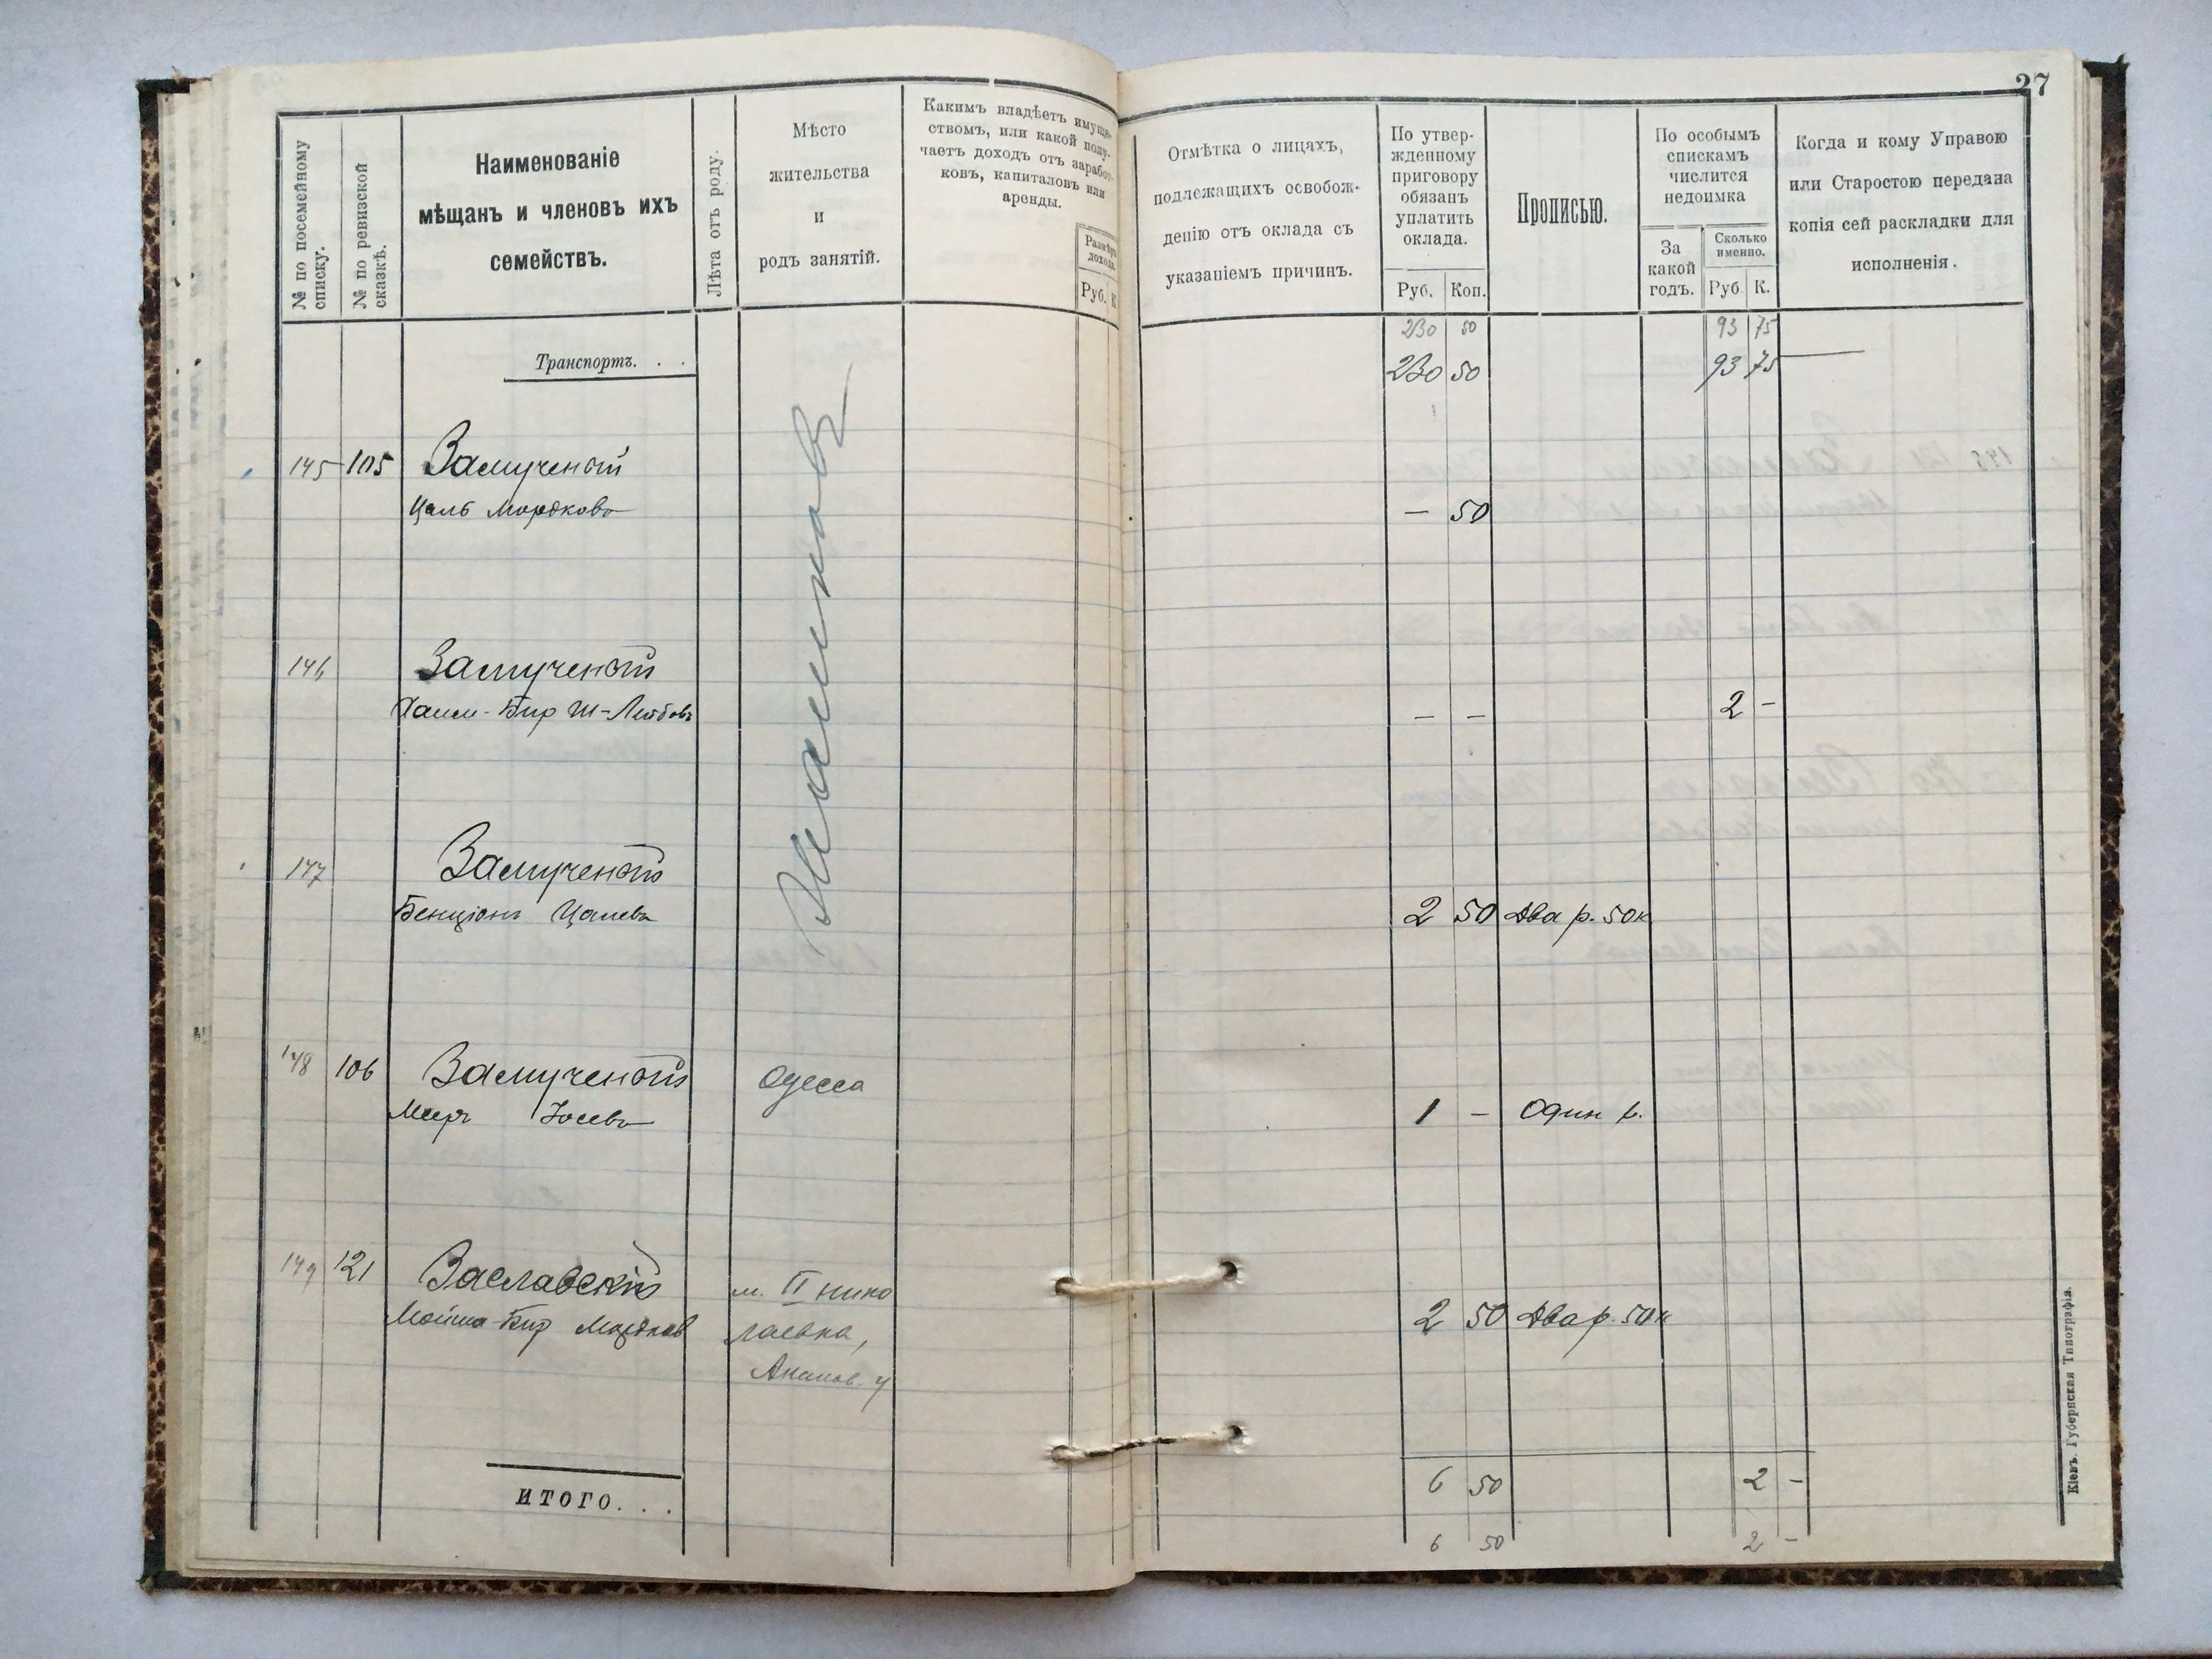 27
№ по посемейному
списку.
№ по ревизской
сказкѣ.
Наименованіе
мѣщанъ и членовъ ихъ
семействъ.
Лѣта отъ роду.
Мѣсто
жительства
и
родъ занятій.
Какимъ владѣетъ имуще-
ствомъ, или какой полу-
чаетъ доходъ отъ заработ-
ковъ, капиталовъ или
аренды.
Размѣръ
дохода.
Руб. К
Отмѣтка о лицахъ,
подлежащихъ освобож-
денію отъ оклада съ
указаніемъ причинъ.
По утвер-
жденному
приговору
обязанъ
уплатить
оклада.
Руб. Коп.
Прописью.
По особымъ
спискамъ
числится
недоимка
За
какой
годъ.
Сколько
именно.
Руб К.
Когда и кому Управою
или Старостою передана
копія сей раскладки для
исполненія.
230 50 93 75
Транспортъ. . . 230 50 93 75
145 105 Замученый
Цаль Мордковъ — 50
146 Замученый
Хаим-Бир Ш-Лейбовъ — — 2 —
147 Замученый
Бенціонъ Цалевъ 2 50 Два р. 50 к
148 106 Замученый Одесса
Меер Іосевъ 1 — Один р.
149 121 Заславскій м. II нико
Мойша-Бир Мордков лаевка, 2 50 Два р. 50 к
Анан​ов. у
ИТОГО. . . 6 50 2 —
6 50 2 —
Кіевъ. Губернская Типографія.